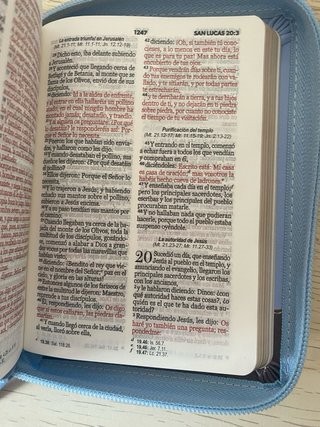 1247
SAN LUCAS 20:3
La entrada triunfal en Jerusalén
(Mt. 21.1-11; Mr. 11.1-11; Jn. 12.12-19)
Dicho esto, iba delante subiendo
a Jerusalén.
Y aconteció que llegando cerca de
Betfagé y de Betania, al monte que se
llama de los Olivos, envió dos de sus
discípulos,
diciendo: Id a la aldea de enfrente,
y al entrar en ella hallaréis un pollino
atado, en el cual ningún hombre ha
montado jamás; desatadlo, y traedlo.
Y si alguien os preguntare: ¿Por qué lo
desatáis? le responderéis así: Porque
el Señor lo necesita.
Fueron los que habían sido enviados,
y hallaron como les dijo.
Y cuando desataban el pollino, sus
dueños les dijeron: ¿Por qué desatáis
el pollino?
Ellos dijeron: Porque el Señor lo
necesita.
Y lo trajeron a Jesús; y habiendo
echado sus mantos sobre el pollino,
subieron a Jesús encima.
Y a su paso tendían sus mantos por
el camino.
Cuando llegaban ya cerca de la bajada
del monte de los Olivos, toda la
multitud de los discípulos, gozándose,
comenzó a alabar a Dios a grandes
voces por todas las maravillas que
habían visto,
diciendo: ¡Bendito el rey que viene
en el nombre del Señor; paz en el cielo,
y gloria en las alturas!
Entonces algunos de los fariseos de
entre la multitud le dijeron: Maestro,
reprende a tus discípulos.
Él, respondiendo, les dijo: Os digo
que si éstos callaran, las piedras clamarían.
Y cuando llegó cerca de la ciudad,
al verla, lloró sobre ella,
19.38: Sal. 118.26.
42 diciendo: ¡Oh, si también tú conocieses,
a lo menos en este tu día, lo
que es para tu paz! Mas ahora está
encubierto de tus ojos.
43 Porque vendrán días sobre ti, cuando
tus enemigos te rodearán con vallado,
y te sitiarán, y por todas partes te
estrecharán,
44 y te derribarán a tierra, y a tus hijos
dentro de ti, y no dejarán en ti piedra
sobre piedra, por cuanto no conociste
el tiempo de tu visitación.
Purificación del templo
(Mt. 21.12-17; Mr. 11.15-19; Jn. 2.13-22)
45 Y entrando en el templo, comenzó
a echar fuera a todos los que vendían
y compraban en él,
46 diciéndoles: Escrito está: Mi casa
es casa de oración; mas vosotros la
habéis hecho cueva de ladrones.
47 Y enseñaba cada día en el templo;
pero los principales sacerdotes, los
escribas y los principales del pueblo
procuraban matarle.
48 Y no hallaban nada que pudieran
hacerle, porque todo el pueblo estaba
suspenso oyéndole.
La autoridad de Jesús
(Mt. 21.23-27; Mr. 11.27-33)
20 Sucedió un día, que enseñando
Jesús al pueblo en el templo, y
anunciando el evangelio, llegaron los
principales sacerdotes y los escribas,
con los ancianos,
2 y le hablaron diciendo: Dinos: ¿con
qué autoridad haces estas cosas?, ¿o
quién es el que te ha dado esta autoridad?
3 Respondiendo Jesús, les dijo: Os
haré yo también una pregunta; respondedme:
19.46: Is. 56.7.
19.46: Jer. 7.11.
19.47: Lc. 21.37.